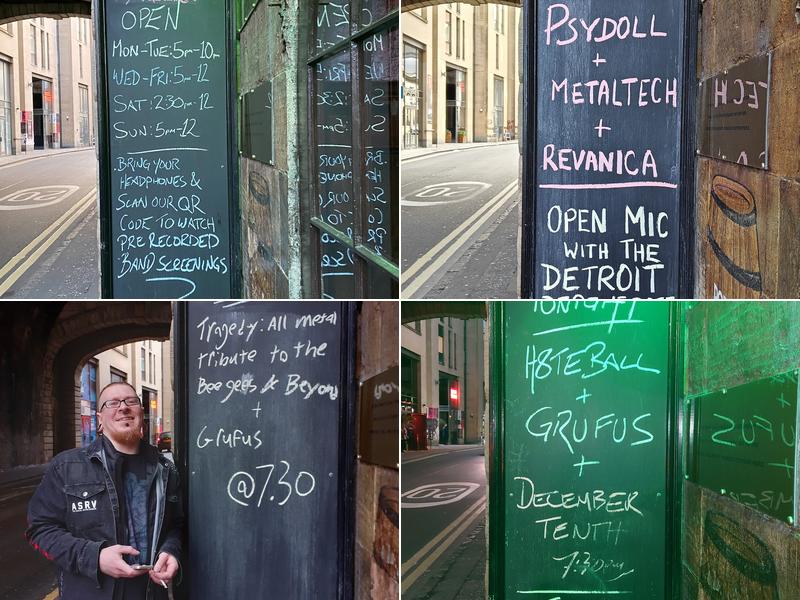 OPEN
MON-TUE: 5PM-10PM
WED-FRI: 5PM-12
SAT: 2:30PM-12
SUN: 5PM-12
BRING YOUR
HEADPHONES &
SCAN OUR QR
CODE TO WATCH
PRE RECORDED
BAND SCREENINGS
PSYDOLL
+
METALTECH
+
REVANICA
OPEN MIC
WITH THE
DETROIT
20
Tragedy: All metal
tribute to the
Bee gees & Beyond
+
Grufus
@7.30
ASRV
H8TEBALL
+
GRUFUS
+
DECEMBER
TENTH
7:30pm
20